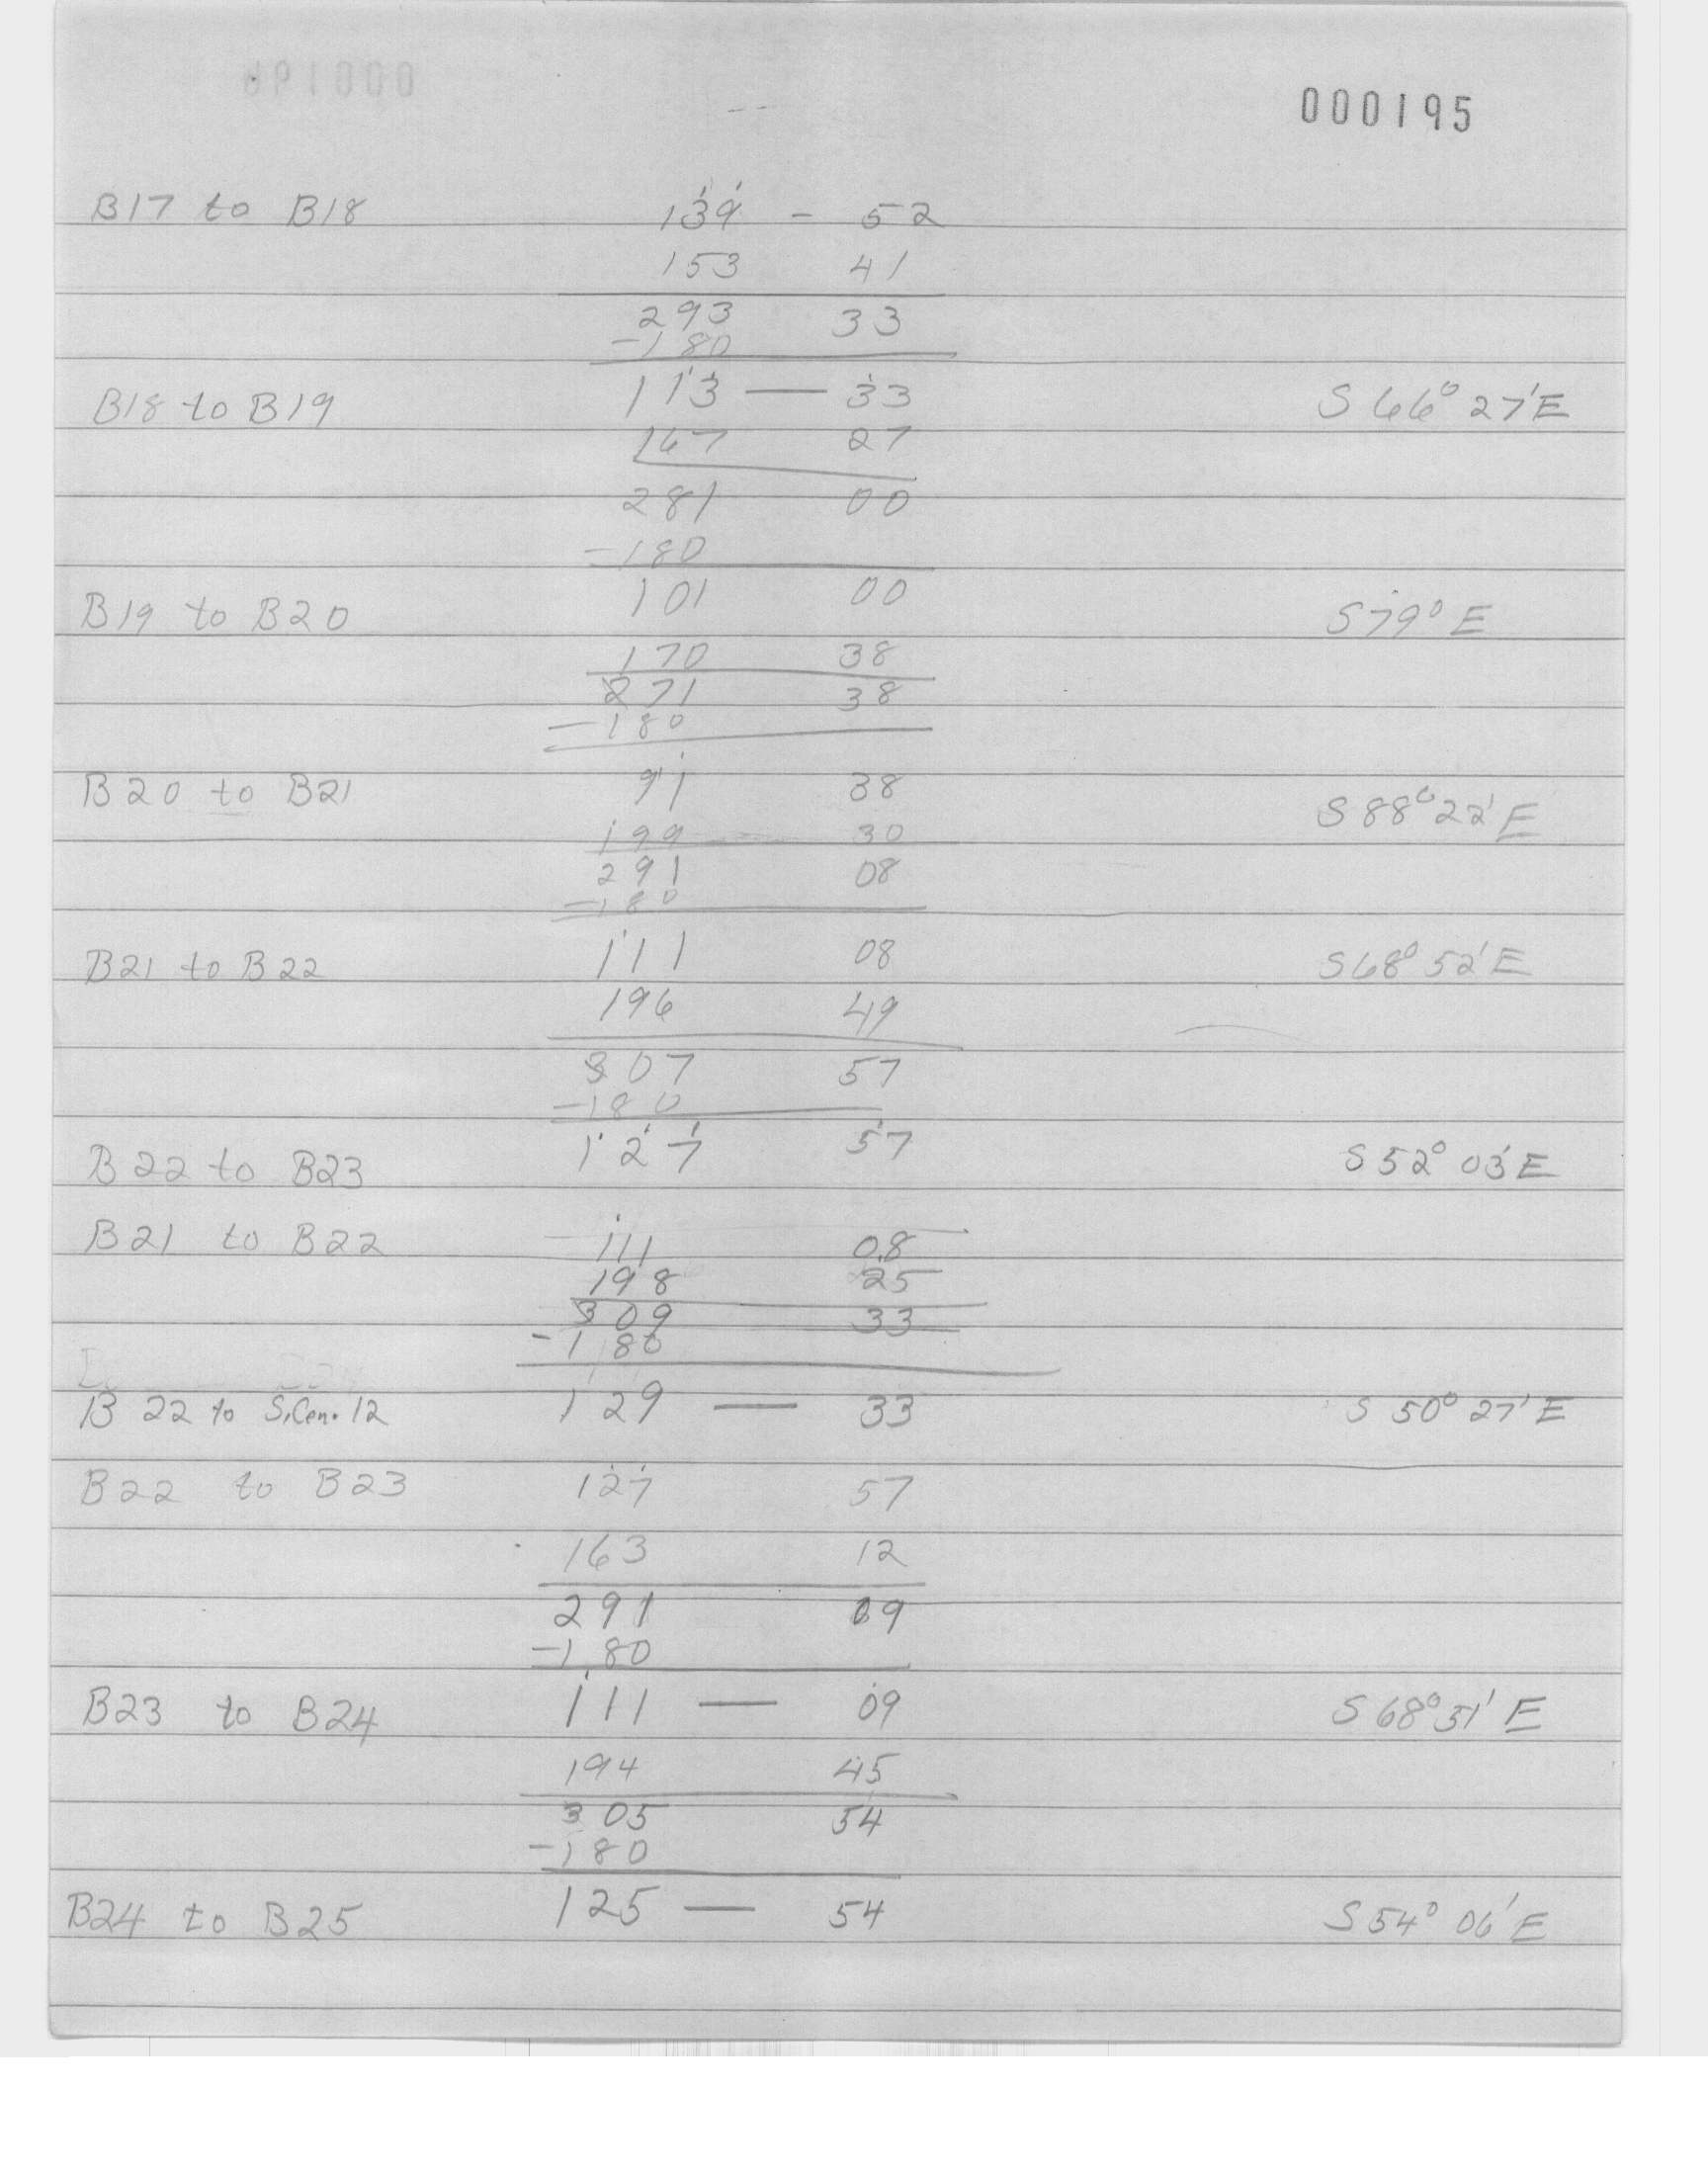 000195
B17 to B18 139 - 52
153 41
293 33
-180
B18 to B19 113 — 33 S 66° 27' E
167 27
281 00
-180
B19 to B20 101 00 S 79° E
170 38
271 38
-180
B20 to B21 91 38 S 88° 22' E
199 30
291 08
-180
B21 to B22 111 08 S 68° 52' E
196 49
307 57
-180
B22 to B23 127 57 S 52° 03' E
B21 to B22 111 08
198 25
309 33
-180
B 22 to S.Cen. 12 129 — 33 S 50° 27' E
B22 to B23 127 57
163 12
291 09
-180
B23 to B24 111 — 09 S 68° 51' E
194 45
305 54
-180
B24 to B25 125 — 54 S 54° 06' E